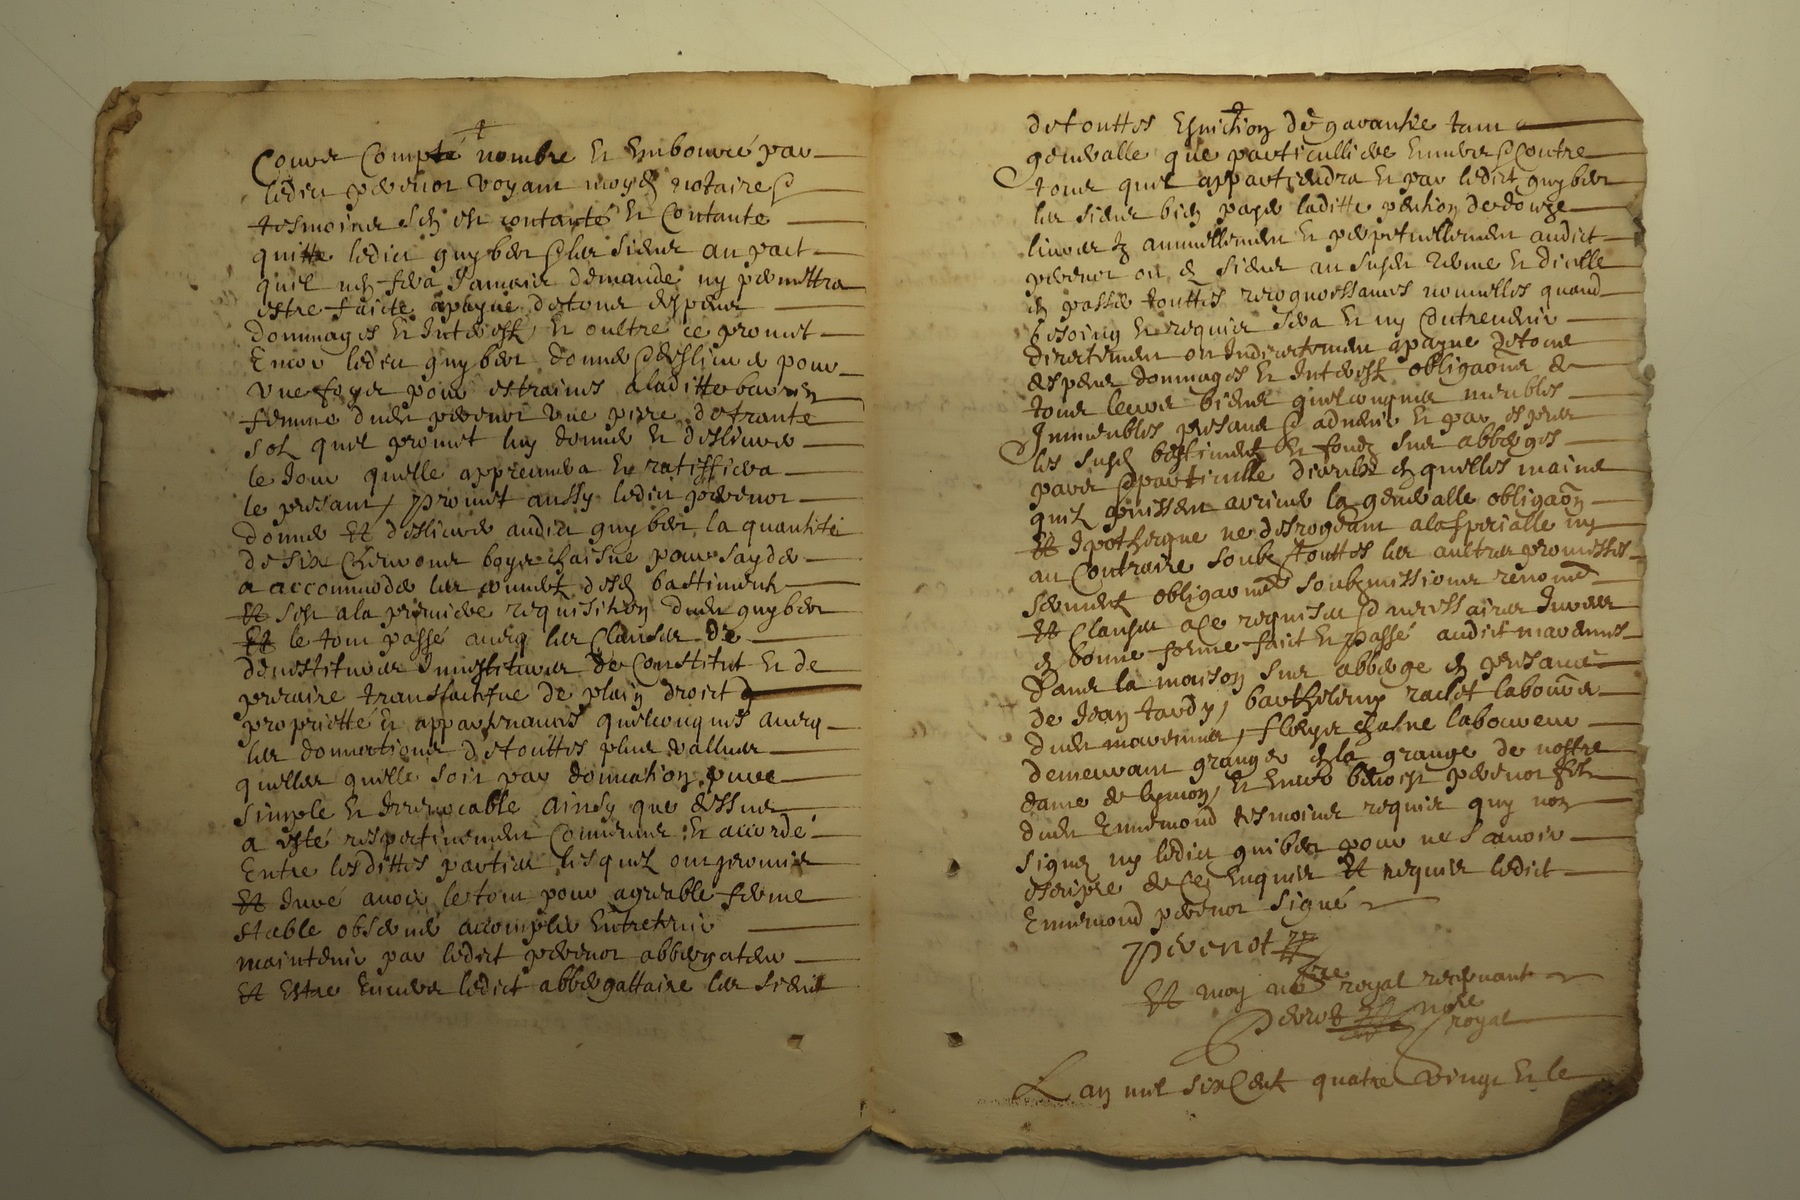 Couvr Compté nombre et Embourcé par
ledict pevenot voyant moyd notaire &
tesmoins sen est contanté et Contante
quitte ledict guyber & les siens au pact
quil nen fera Jamais demande ny permettra
estre faicte apayne de tous despens
dommages et Interestz, et oultre ce promet
Encor ledict guyber donner & deslivrer pour
une foys pour estraines a laditte
femme dudict pevenot une piece de trante
solz quil promet luy donner et deslivrer
le Jour quelle appreuvera et ratiffiera
le presant, promet aussy ledict pevenot
donner Et deslivrer audict guyber la quantité
de six chevrons boys chaisne pour sayder
a accommoder les couvertz desd bastiments
Et sest a la premiere requisition dudict guyber
Et le tout passé avecq les Clauses de
devestiture Investiture de Constitut et de
precaire translactifve de plain droict de
proprietté et appartenances quelconques avecq
les donnations de touttes plus vallues
quelles quelle soit par donnation pure
simple et Irrevocable ainsy que dessus
a esté respectivement Convenu et accordé
Entre lesdittes parties lesquelz ont promis
Et Juré avoir le tout pour agreable ferme
stable observer accomplir Entretenir
maintenir par ledict pevenot abbergateur
Et Estre Envers ledict abbergattaire les siens
de touttes Esviction de garantie tant
generalle que particulliere Envers & Contre
tous quil appartiendra et par ledict guyber
les siens bien payer laditte pention de douze
livres tz annuellement et perpetuellement audict
pevenot ou es siens au susdt terme et dicelle
en passer touttes recognoissances nouvelles quand
besoing et requis sera et ny Contrevenir
directement ou Indirectement apayne de tous
despens dommages et Interestz obligaōns de
tous leurs biens quelconques meubles
Immeubles presans & advenir et par expres
les susd bastiments et fondz sus abberges
pars & particulle diceulx en quelles mains
quilz puissent arriver la generalle obligaōn
Et Ipotheque ne desrogeant a la specialle ny
au Contraire soubz touttes les aultres promesses
serments obligaōns soubzmissions renonc
Et Clauses a ce requises & necessaires
en bonne forme faict et passé audict marennes
Dans la maison sus abberge en presance
de Jean tardy, barthelemy raclet laboureur
dudict marennes, fleury chasne laboureur
demeurant granger en la grange de nostre
dame de lymon, et Encor benoist pevenot filz
dudict Ennemond tesmoins requis quy non
signez ny ledict guiber pour ne scavoir
escripre de ce Enquis Et requis ledict
Ennemond pevenot signé
Pevenot
Et moy nore royal recepvant
nore royal
Lan mil six Centz quatre vingt et le